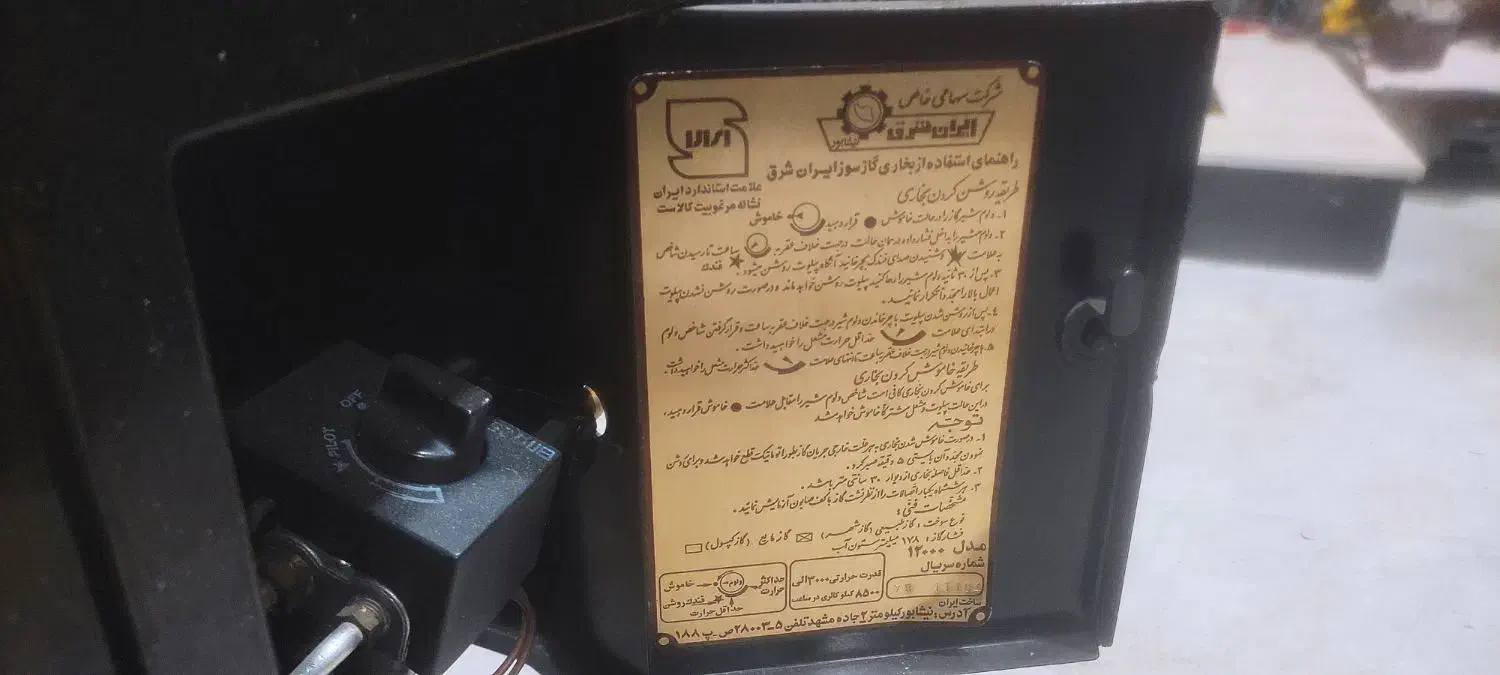 شرکت سهامی خاص
ایران شرق
نیشابور
علامت استاندارد ایران
نشانه مرغوبیت کالاست
راهنمای استفاده از بخاری گازسوز ایران شرق
طریقه روشن کردن بخاری
۱- ولوم شیر گاز را در حالت خاموش ● قرار دهید خاموش
۲- ولوم شیر را بداخل فشار داده در همان حالت در جهت خلاف عقربه ساعت تا رسیدن شاخص
به علامت ★ و شنیدن صدای فندک بچرخانید آنگاه پیلوت روشن میشود. ★ فندک
۳- پس از ۳۰ ثانیه ولوم شیر را رها کنید پیلوت روشن خواهد ماند و در صورت روشن نشدن پیلوت
اعمال بالا را مجدداً تکرار نمائید.
۴- پس از روشن شدن پیلوت با چرخاندن ولوم شیر در جهت خلاف عقربه ساعت و قرار گرفتن شاخص ولوم
در ابتدای علامت حداقل حرارت مشعل را خواهید داشت.
۵- با چرخاندن ولوم شیر در جهت خلاف عقربه ساعت تا انتهای علامت حداکثر حرارت مشعل را خواهید داشت.
طریقه خاموش کردن بخاری
برای خاموش کردن بخاری کافی است شاخص ولوم شیر را مقابل علامت ● خاموش قرار دهید.
در این حالت پیلوت و مشعل مشترکاً خاموش خواهد شد
توجه
۱- در صورت خاموش شدن بخاری به هر علت خارجی جریان گاز بطور اتوماتیک قطع خواهد شد و برای روشن
نمودن مجدد آن بایستی ۵ دقیقه صبر کرد.
۲- حداقل فاصله بخاری از دیوار ۳۰ سانتی متر باشد.
۳- هر ششماه یکبار اتصالات را از نظر نشت گاز با کف صابون آزمایش نمائید.
مشخصات فنی:
نوع سوخت: گاز طبیعی (گاز شهر) ☒ گاز مایع (گاز کپسول) □
فشار گاز: ۱۷۸ میلیمتر ستون آب
مدل ۱۲۰۰۰
شماره سریال
قدرت حرارتی ۳۰۰۰ الی
۸۵۰۰ کیلو کالری در ساعت
حداکثر حرارت
ولوم
خاموش
فندک روشن
حداقل حرارت
ساخت ایران
آدرس: نیشابور کیلومتر ۲ جاده مشهد تلفن ۵-۲۸۰۰۳ ص-پ ۱۸۸
OFF
PILOT